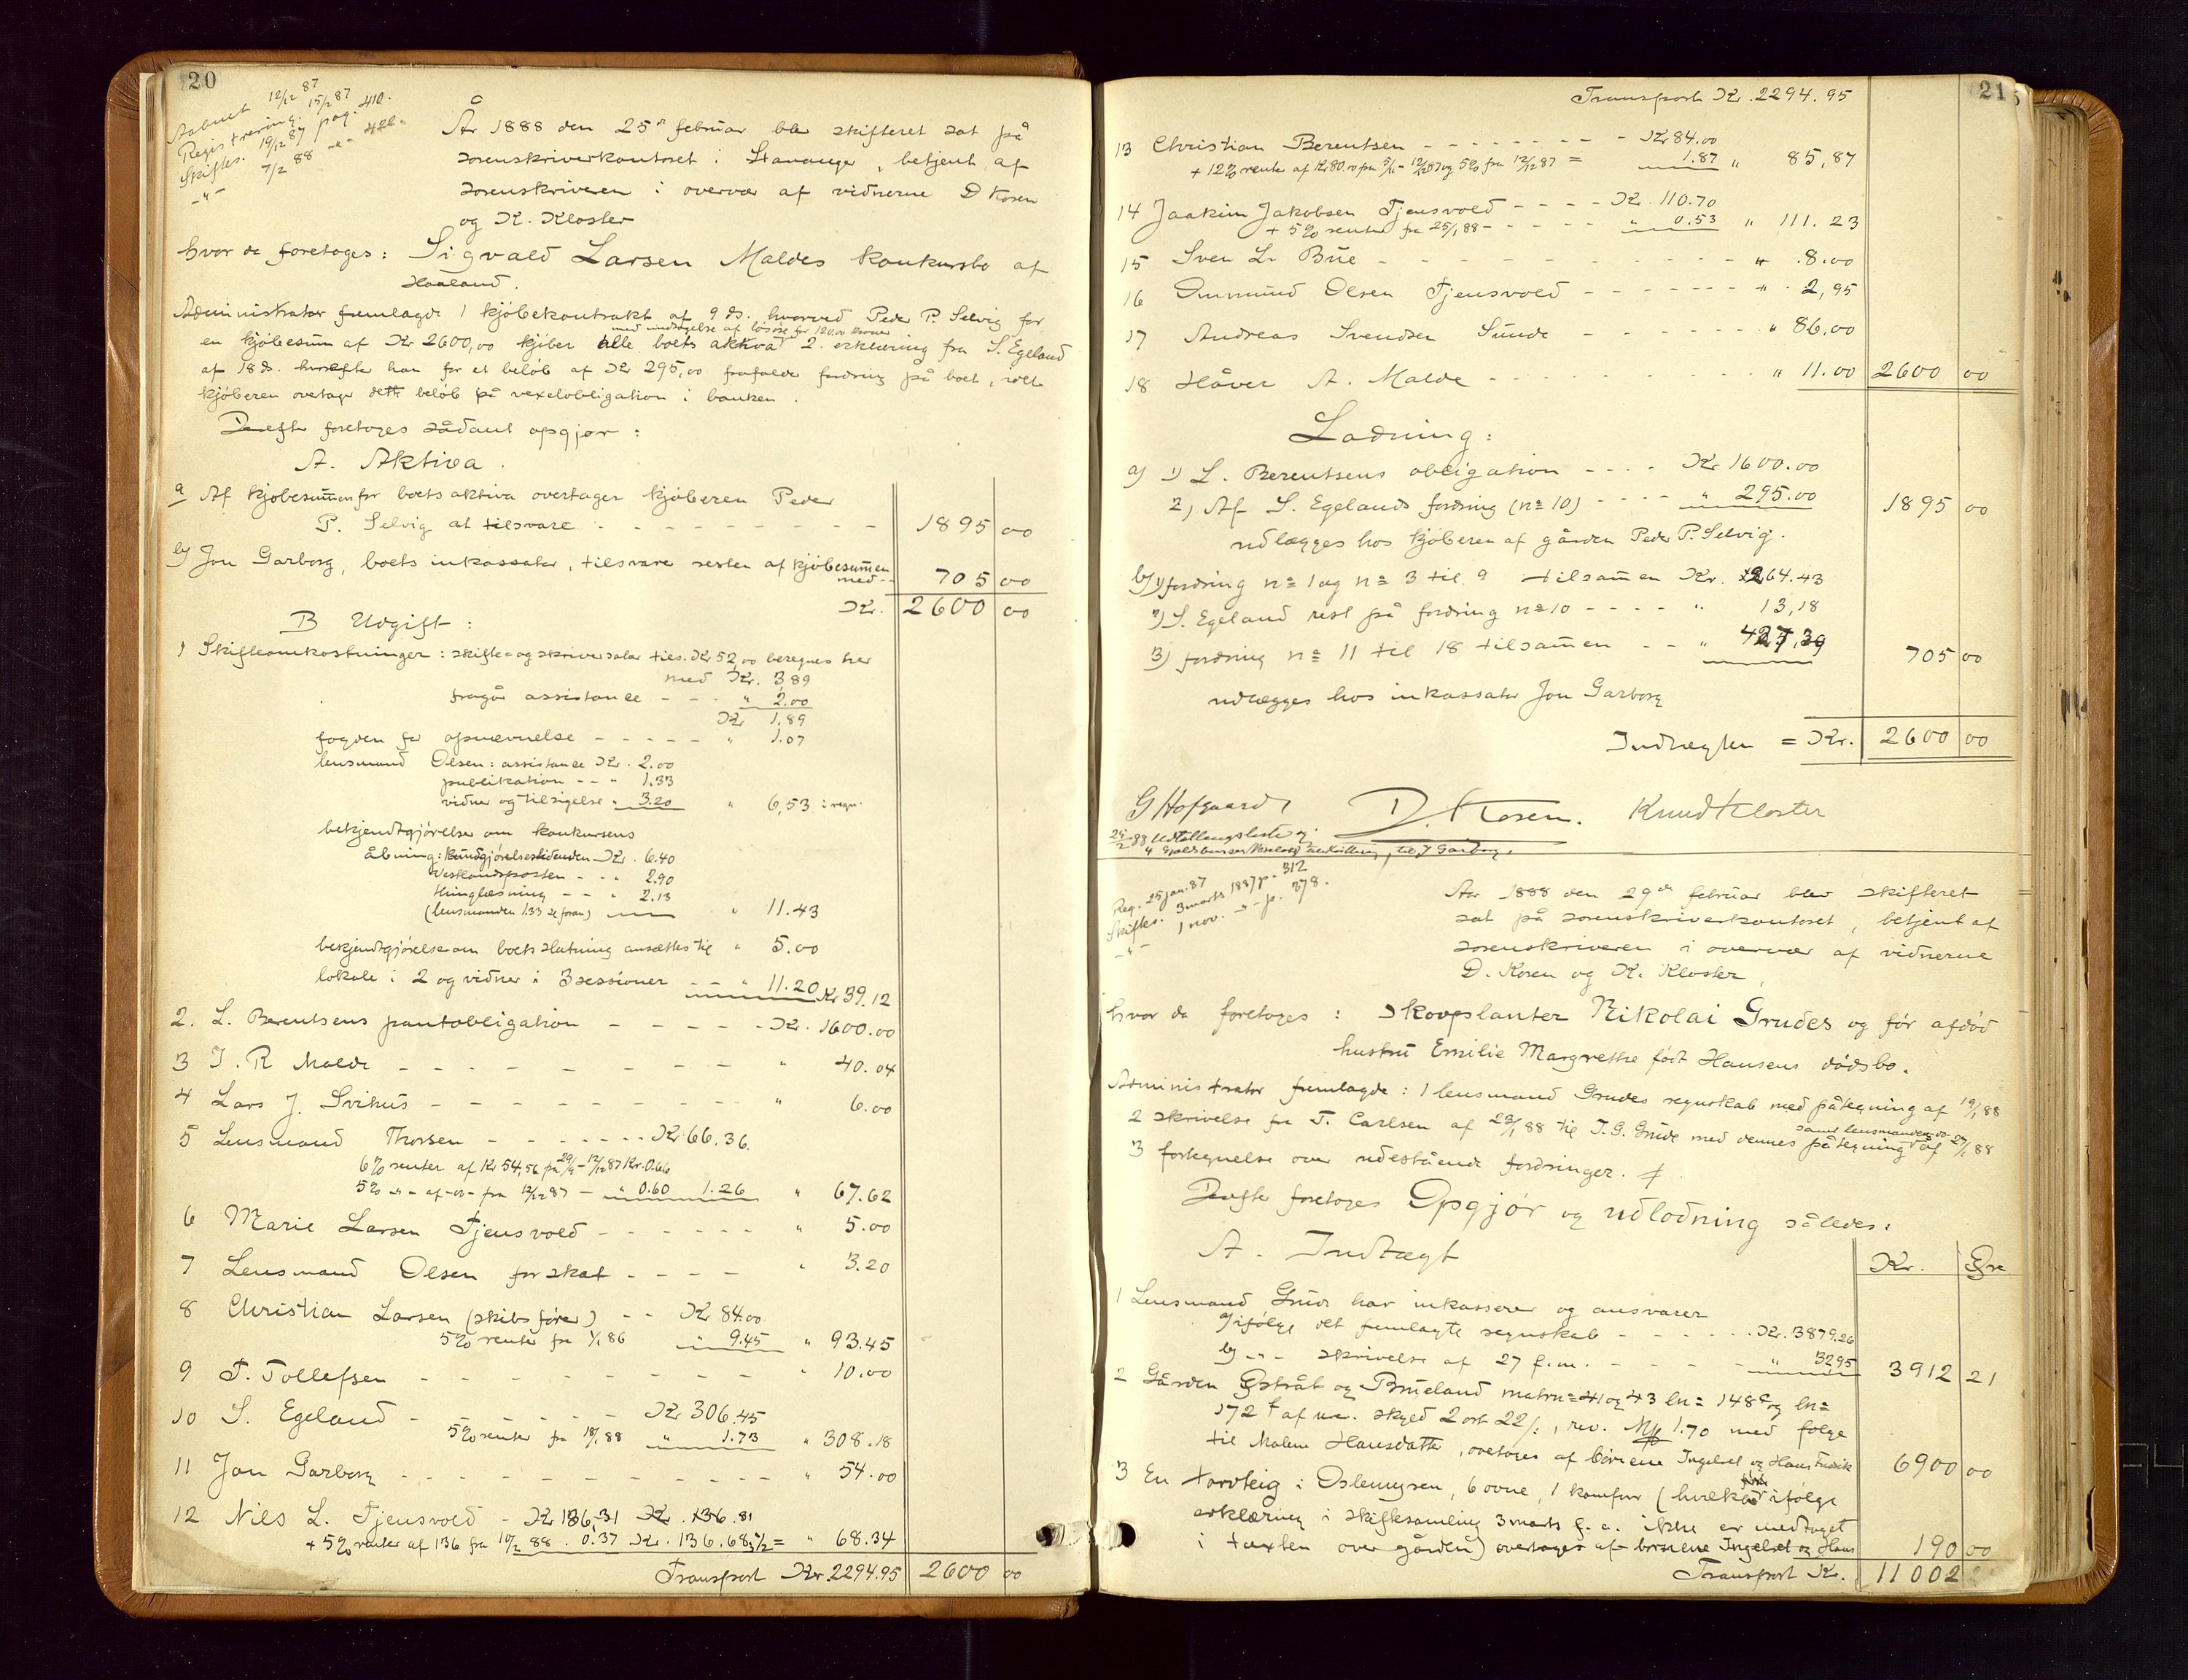 20
Aabnet 12/12 87
Registrering. 15/12 87 pag. 410.
Skiftes. 19/12 87 -"- 422.
-"- 7/2 88
År 1888 den 25de februar blev skifteret sat på
sorenskriverkontoret i Stavanger, betjent af
sorenskriveren i overvær af vidnerne D Kosen
og K. Kloster
hvor da foretoges: Sigvald Larsen Maldes konkursbo af
Haaland.
Administrator fremlagde 1 kjöbekontrakt af 9 ds. hvorved Peder P. Selvig for
med undtagelse af lösöre for 120,00 kroner
en kjöbesum af Kr 2600,00 kjöber alle boets aktiva 2. erklæring fra S. Egeland
af 18 ds. hvorefter han for et belöb af Kr 295,00 frafalder fordring på boet, idet
kjöberen overtager dette belöb på vexelobligation i banken.
Derefter foretoges sådant opgjør:
A. Aktiva.
a Af kjöbesummen for boets aktiva overtager kjöberen Peder
P. Selvig at tilsvare - - - - - 1895 00
b) Jon Garborg, boets inkassator, tilsvare resten af kjöbesummen
med - - 705 00
Kr. 2600 00
B Udgift:
1 Skifteomkostninger: skifte- og skriversalær tils. Kr 52,00 beregnes her
med Kr. 3 89
fragår assistance - - " 2.00
Kr 1.89
fogden for opnævnelse - - - - - " 1.07
lensmand Olsen: assistance Kr. 2.00
publikation - - " 1.33
vidner og tilsigelse " 3.20 " 6,53 : regn.
bekjendtgjörelse om konkursens
åbning: Kundgjörelsestidenden Kr. 6.40
Vestlandsposten - - " 2.90
thinglæsning - - " 2.13
(lensmanden 1.33 se foran) " 11.43
bekjendtgjörelse om boets slutning ansættes til " 5.00
lokale i 2 og vidner i 3 sessioner - - " 11.20 Kr 39.12
2. L. Berentsens pantobligation - - - - - Kr. 1600.00
3 T. R Malde - - - - - - - " 40.04
4 Lars J. Svihus - - - - - - - " 6.00
5 Lensmand Thorsen - - - - - - Kr 66.36.
6% renter af Kr 54,56 fra 29/9 - 12/12 87 Kr. 0.66
5% -"- af -"- fra 12/12 87 - " 0.60 1.26 " 67.62
6 Marie Larsen Tjensvold - - - - - - " 5.00
7 Lensmand Olsen for skat - - - - " 3.20
8 Christian Larsen (skibsförer) - - Kr 84.00
5% renter fra 1/1 86 " 9.45 " 93.45
9 T. Tollefsen - - - - - - - - " 10.00
10 S. Egeland - - - - - - Kr 306.45
5% renter fra 18/1 88 " 1.73 " 308.18
11 Jon Garborg - - - - - - - - " 54.00
12 Nils L. Tjensvold - Kr 136.31 Kr. 136.31
+ 5% renter af 136 fra 10/2 88 . 0.37 Kr. 136.68 1/2 = " 68.34
Transport Kr 2294.95 2600 00
21
Transport Kr. 2294.95
13 Christian Berentsen - - - - - - - - Kr 84.00
+ 12% rente af Kr 80.00 fra 5/10 - 12/12 87 og 5% fra 12/12 87 = 1.87 " 85,87
14 Joakim Jakobsen Tjensvold - - - - Kr. 110.70
+ 5% renter fra 25/1 88 - - - - - " 0.53 " 111.23
15 Sven L. Bue - - - - - - - - - - " 8.00
16 Ommund Olsen Tjensvold - - - - - - - " 2,95
17 Andreas Svendsen Sunde - - - - - - - " 86.00
18 Håver A. Malde - - - - - - - - - " 11.00 2600 00
Lodning:
a) 1) L. Berentsens obligation - - - - Kr 1600.00
2) Af S. Egelands fordring (no 10) - - - - " 295.00 1895 00
udlægges hos kjöberen af gården Peder P. Selvig.
b) 1) fordring no 1 og no 3 til 9 tilsammen Kr. 264.43
2) S. Egeland rest på fordring no 10 - - - - " 13,18
3) fordring no 11 til 18 tilsammen - - " 427,39 705 00
udlægges hos inkassator Jon Garborg
Indtægten = Kr. 2600 00
G Hofgaard D. Kosen. Knud Kloster
25/2 88 Udtællingsliste og
Reg. 25 jan. 87
Skiftes. 3 marts 1887 p. 312
-"- 1 nov. -"- p. 378.
Aar 1888 den 29de februar blev skifteret
sat på sorenskriverkontoret, betjent af
sorenskriveren i overvær af vidnerne
D. Kosen og K. Kloster,
hvor da foretoges: Skovplanter Nikolai Grudes og før afdød
hustru Emilie Margrethe født Hansens dödsbo.
Administrator fremlagde: 1 lensmand Grudes regnskab med påtegning af 19/1 88
2 skrivelse fra T. Carlsen af 23/1 88 til T. G. Grude med dennes påtegning af 27/1 88
samt lensmandens do
3 fortegnelse over udestående fordringer.
Derefter foretoges Opgjör og udlodning således:
A. Indtægt
Kr. Øre
1 Lensmand Grude har inkasseret og ansvarer
a) ifölge det fremlagte regnskab - - - - - Kr. 3879.26
b) -"- skrivelse af 27 f.m. - - - - - " 32.95 3912 21
2 Gården Østråt og Brueland matr. no 41 og 43 ln = 148c og ln =
172 f af ur. skyld 2 ort 22 /:, rev. Mk 1.70 med følge
til Malene Hansdatter, overtages af börnene Ingebret og Hans Fredrik 6900 00
3 En torvteig i Oslemyren, 6 ovne, 1 komfur (hvilket ifølge
erklæring i skiftesamling 3 marts f. a. ikke er medtaget
i taxten over gården) overtages af börnene Ingebret og Hans 190 00
Transport Kr. 11002